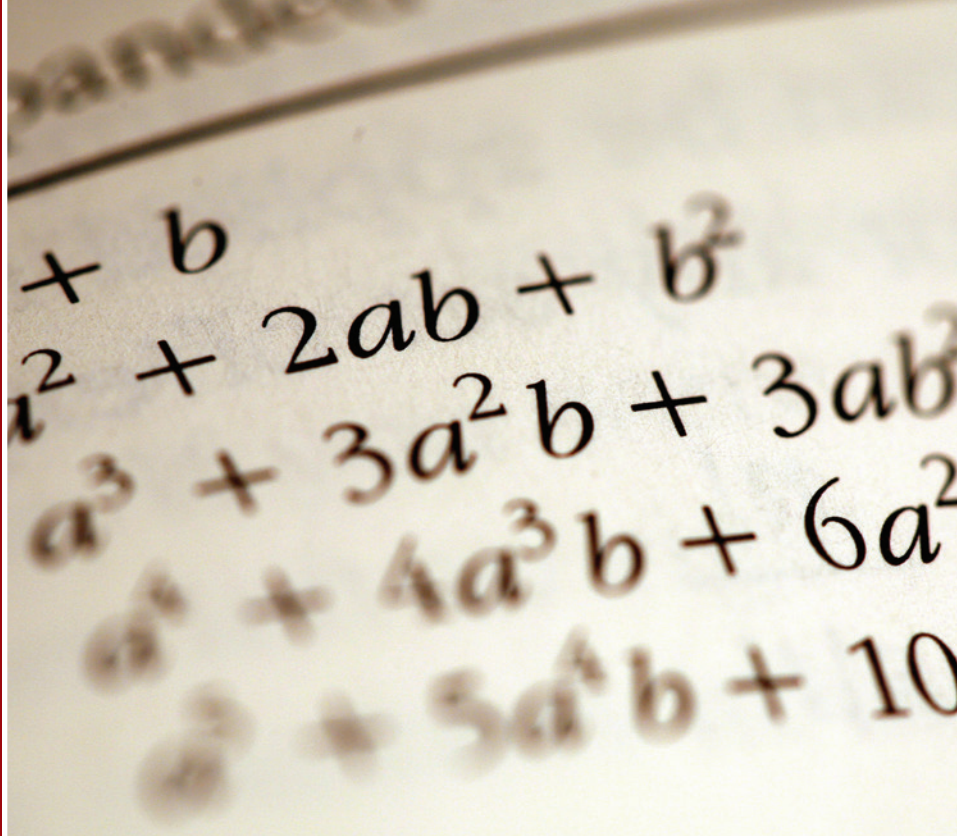 + b
a² + 2ab + b²
a³ + 3a²b + 3ab²
a⁴ + 4a³b + 6a²
a⁵ + 5a⁴b + 10